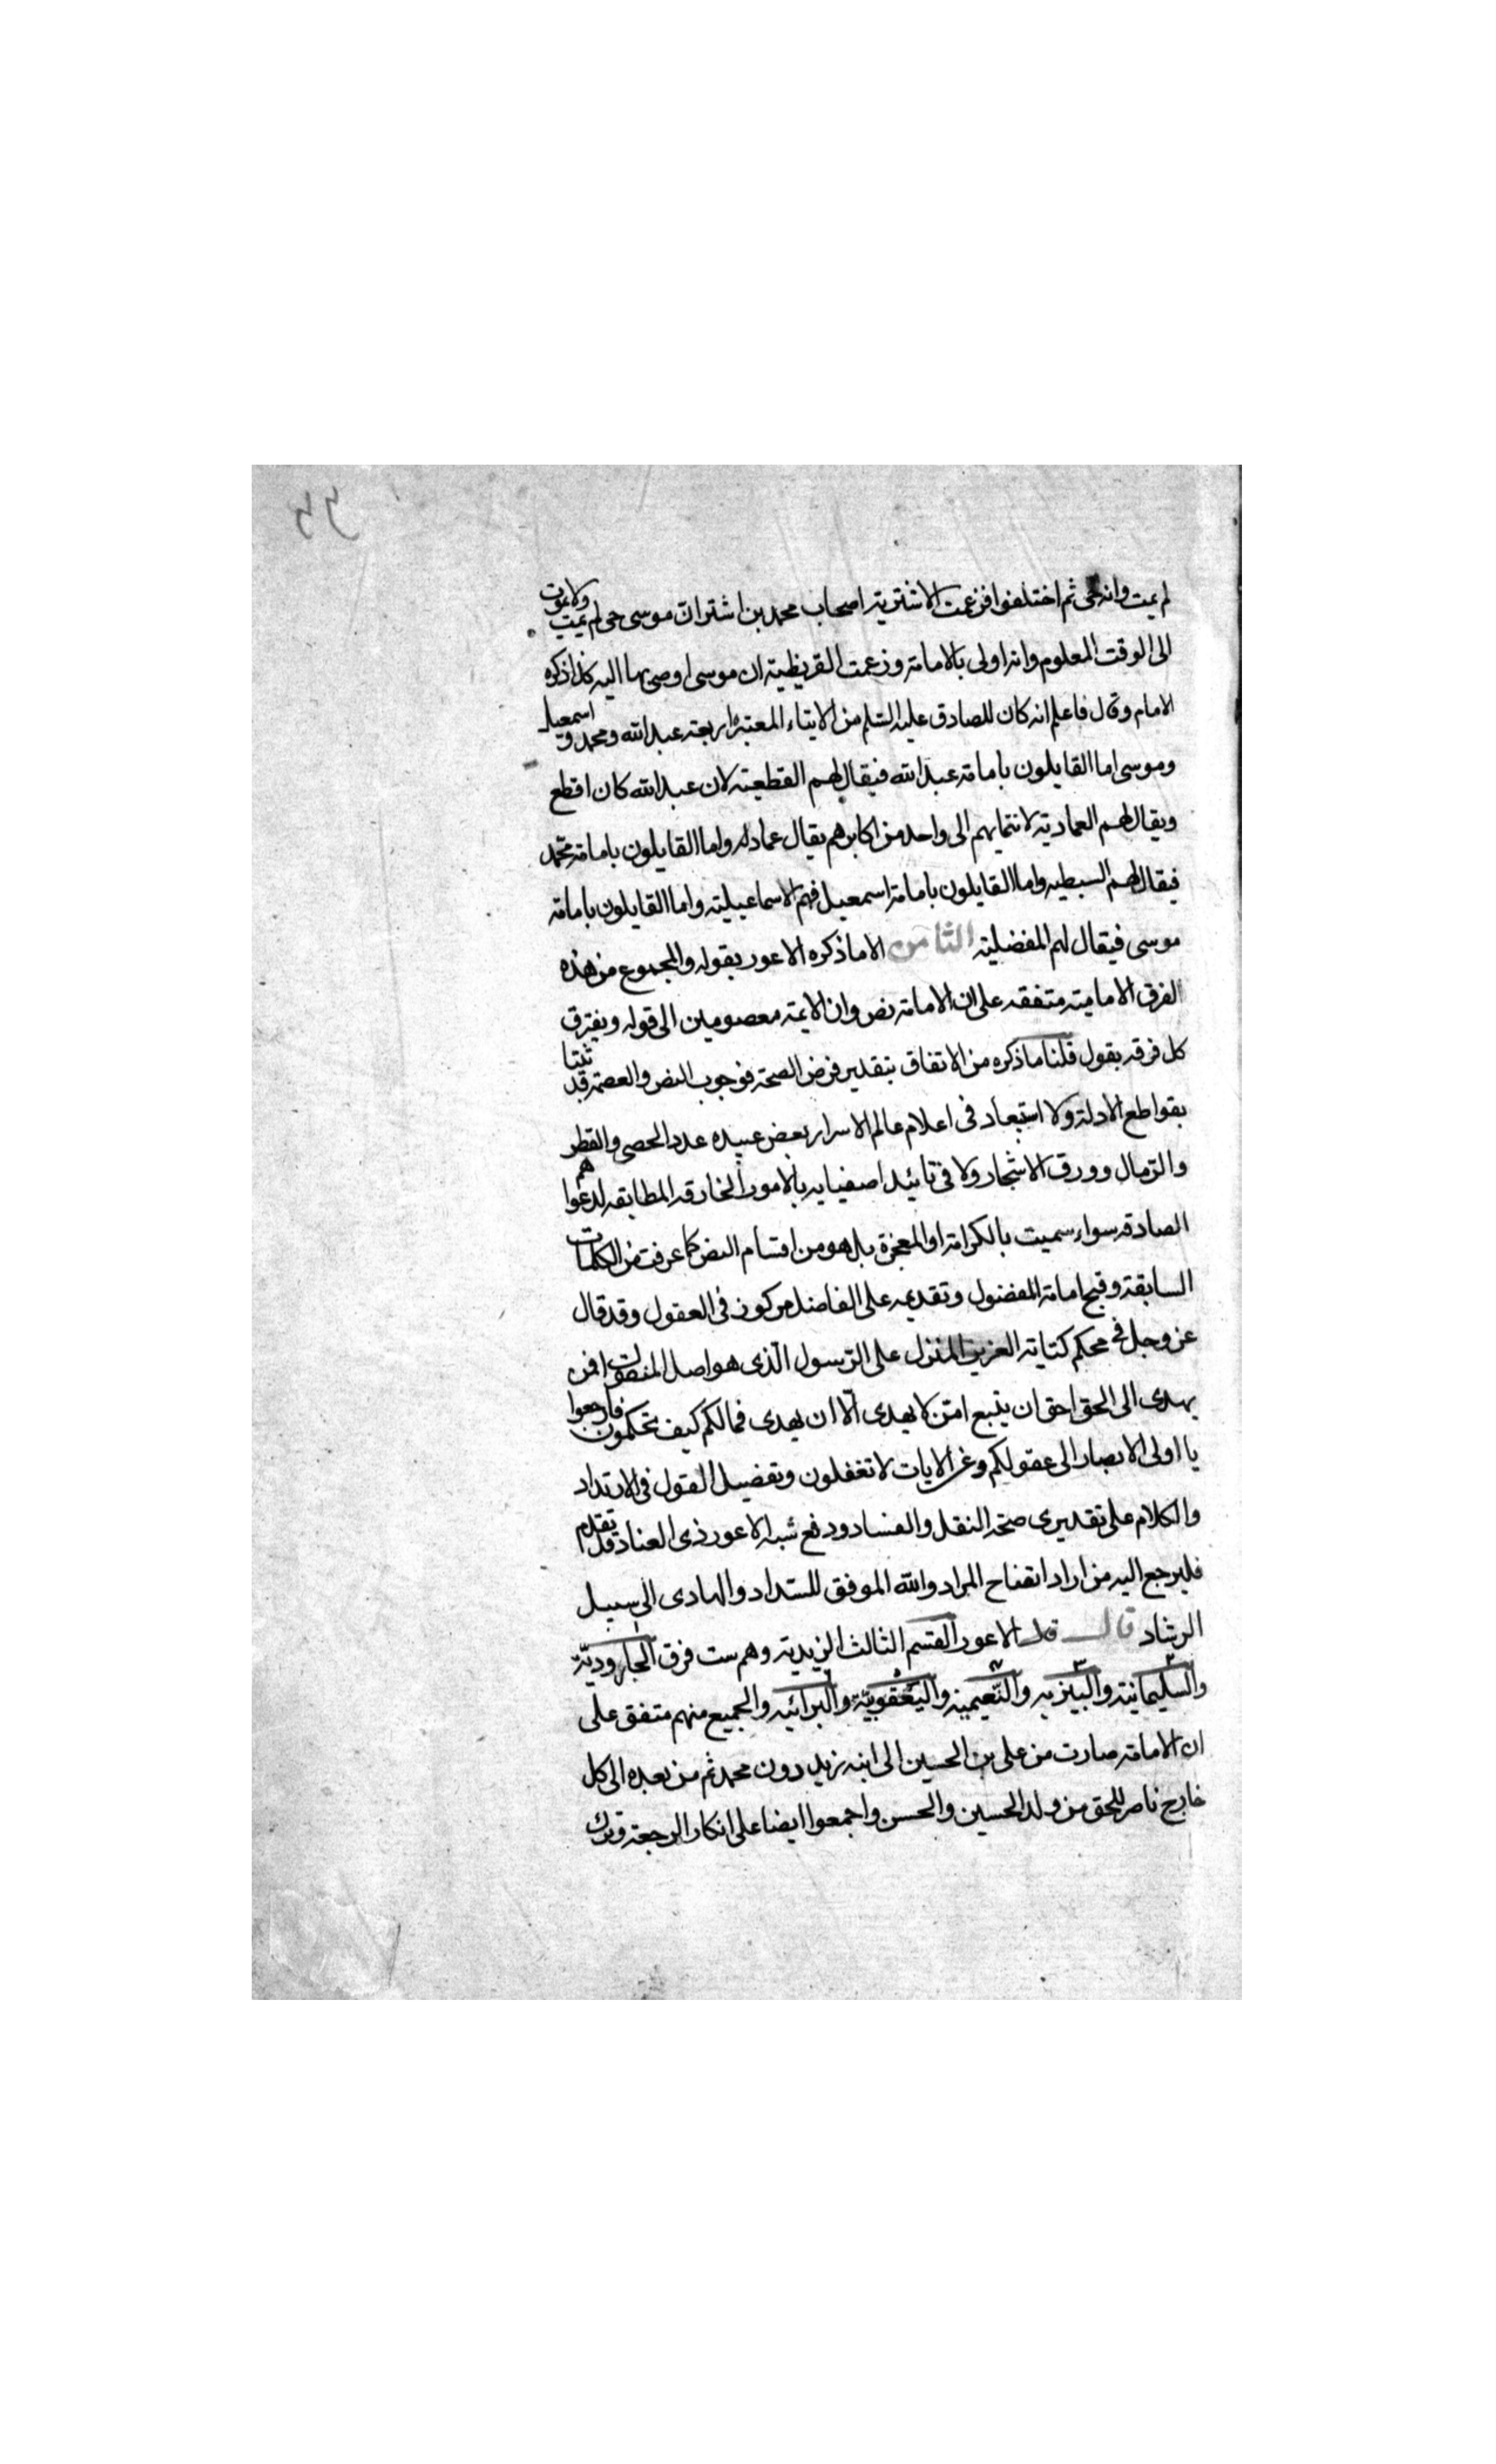 لم يمت وانه حى ثم اختلفوا فزعمت الاشترية اصحاب محمد بن اشتر ان موسى حى لم يمت ولا يموت
الى الوقت المعلوم وانه اولى بالامامة وزعمت القريظية ان موسى اوصى بها اليه كذا ذكره
الامام وقال فاعلم انه كان للصادق عليه السلم من الابناء المعتبرة اربعة عبد الله ومحمد و اسمعيل
وموسى اما القايلون بامامة عبد الله فيقال لهم القطعية لان عبد الله كان اقطع
ويقال لهم العمادية لانتمايهم الى واحد من اكابرهم يقال عماد له واما القايلون بامامة محمد
فيقال لهم السبطيه واما القايلون بامامة اسمعيل فهم الاسماعيلية واما القايلون بامامة
موسى فيقال لهم المفضلية الثامن الاما ذكره الاعور بقوله والمجموع من هذه
الفرق الامامية متفقه على ان الامامة نص وان الايمة معصومين الى قوله ويفترق
كل فرقه بقول قلنا ما ذكره من الاتفاق بتقدير فرض الصحة فوجوب النص والعصمة قد ثبتا
بقواطع الادلة ولا استبعاد فى اعلام عالم الاسرار بعض عبيده عدد الحصى والقطر
والرمال وورق الاشجار ولا فى تائيد اصفيايه بالامور الخارقه المطابقه لدعواهم
الصادقه سواء سميت بالكرامة او المعجزة بل هو من اقسام النص كما عرفت من الكلمات
السابقة وقبح امامة المفضول وتقديمه على الفاضل مركوز فى العقول وقد قال
عز وجل فى محكم كتابة العزيز المنزل على الرسول الذى هو اصل المنقولات افمن
يهدى الى الحق احق ان يتبع امن لا يهدى الا ان يهدى فمالكم كيف تحكمون فارجعوا
يا اولى الابصار الى عقولكم وعن الايات لا تغفلون وتفضيل القول فى الارتداد
والكلام على تقديرى صحة النقل والفساد ودفع شبه الاعور ذى العناد قد تقدم
فليرجع اليه من اراد اتضاح المراد والله الموفق للسداد والهادى الى سبيل
الرشاد قال قال الاعور القسم الثالث الزيدية وهم ست فرق الجاروديّة
والسليمانية والبيزيه والنعيمية واليعقوبيّة والبرائيه والجميع منهم متفق على
ان الامامة صارت من على بن الحسين الى ابنه زيد دون محمد ثم من بعده الى كل
خارج ناصر للحق من ولد الحسين والحسن واجمعوا ايضا على انكار الرجعة وترك